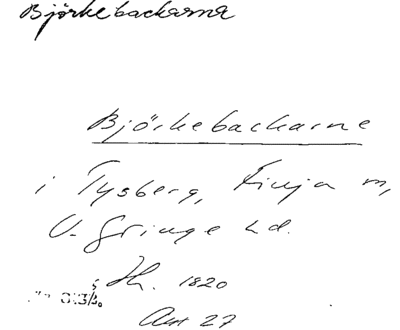 Björkebackarna
Björkebackarna
i Tysberg, Finja m,
V. Göinge hd.
Sk. 1820
Akt 27